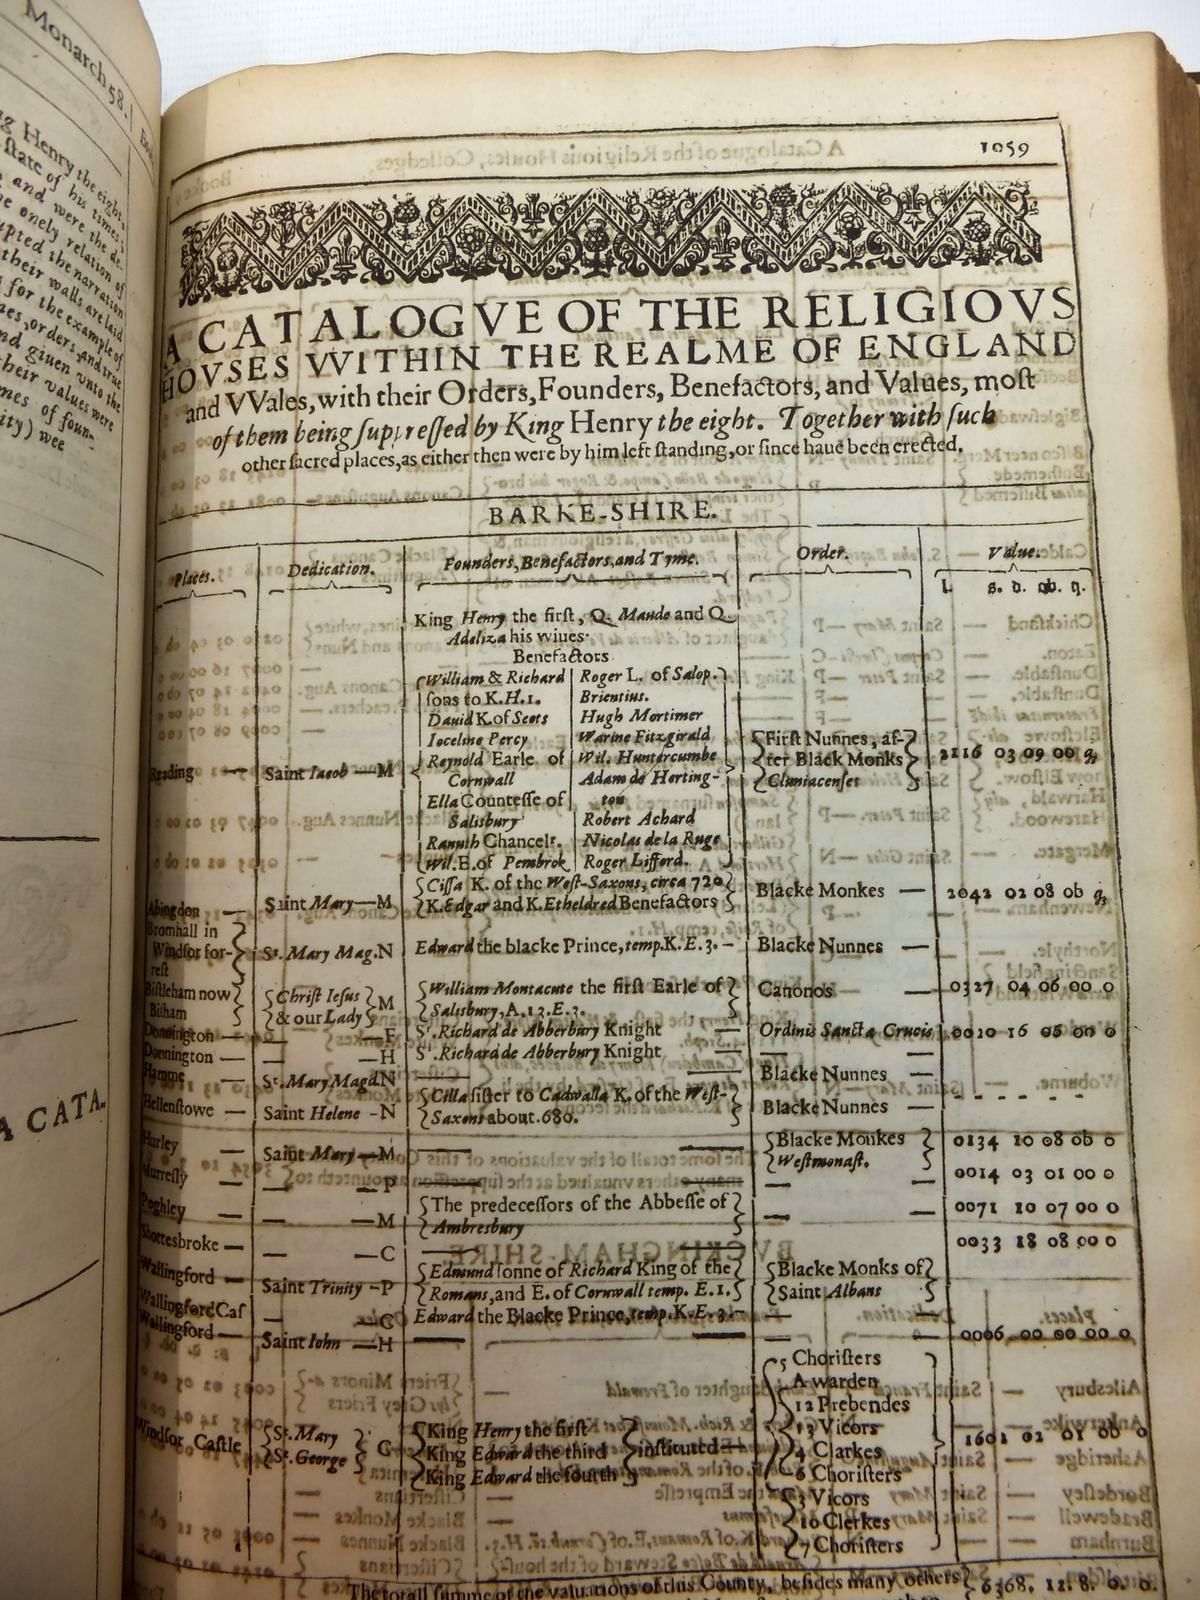 Monarch 58.
g Henry the eight,
state of his times;
and were the de-
e onely relation of
upted the narration
their walls are laid
for the example of
nes, orders, and true
nd giuen vnto the
heir values were
mes of foun-
ity) wee
A CATA-
1059
A CATALOGVE OF THE RELIGIOVS
HOVSES VVITHIN THE REALME OF ENGLAND
and VVales, with their Orders, Founders, Benefactors, and Values, moſt
of them being ſuppreſſed by King Henry the eight. Together with ſuch
other ſacred places, as either then were by him left ſtanding, or ſince haue been erected.
BARKE-SHIRE.
Places. Dedication. Founders, Benefactors, and Tyme. Order. Value.
l. s. d. ob. q.
King Henry the firſt, Q. Maude and Q.
Adeliza his wiues.
Benefactors
William & Richard Roger L. of Salop.
ſons to K. H. 1. Brientius.
Dauid K. of Scots Hugh Mortimer
Ioceline Percy Warine Fitzgirald
Reynold Earle of Wil. Huntercumbe
Cornwall Adam de Herting-
Ella Counteſſe of ton
Salisbury Robert Achard
Ranuth Chancelr. Nicolas de la Ruge
Wil. E. of Pembrok Roger Lifford.
Reading — Saint Iacob — M
Firſt Nunnes, af-
ter Black Monks
Cluniacenſes
2116 03 09 00 q
Abingdon — Saint Mary — M Ciſſa K. of the Weſt-Saxons, circa 720
K. Edgar and K. Etheldred Benefactors Blacke Monkes — 2042 02 08 ob q
Bromhall in
Windſor for-
reſt St. Mary Mag. N Edward the blacke Prince, temp. K. E. 3. — Blacke Nunnes —
Biſtleham now
Biſham Chriſt Ieſus
& our Lady M William Montacute the firſt Earle of
Salisbury, A. 12. E. 3. Canonos — 0327 04 06 00 0
Donnington — — — F Sr. Richard de Abberbury Knight — Ordinis Sanctæ Crucis 0020 16 06 00 0
Donnington — — — H Sr. Richard de Abberbury Knight — —
Hamme — St. Mary Magd. N — — Blacke Nunnes —
Hellenſtowe — Saint Helene - N Cilla ſiſter to Cadwalla K. of the Weſt-
Saxons about. 680. Blacke Nunnes — - - - - -
Hurley — Saint Mary — M — — Blacke Monkes
Weſtmonaſt. 0134 10 08 ob 0
Murreſly — — — P — — — — 0014 03 01 00 0
Poghley — — — M The predeceſſors of the Abbeſſe of
Ambresbury — — 0071 10 07 00 0
Shottesbroke — — — C — — 0033 18 08 00 0
Wallingford — Saint Trinity - P Edmund ſonne of Richard King of the
Romans, and E. of Cornwall temp. E. 1. Blacke Monks of
Saint Albans
Wallingford Caſ — C Edward the Blacke Prince, temp. K. E. 3. — — —
Wallingford — Saint Iohn — H — — — 0006 00 00 00 0
Windſor Caſtle St. Mary
St. George C King Henry the firſt
King Edward the third
King Edward the fourth inſtituted —
5 Choriſters
A warden
12 Prebendes
13 Vicors
4 Clarkes
6 Choriſters
3 Vicors
10 Clerkes
7 Choriſters
1601 02 01 00 0
The totall ſumme of the valuations of this County, beſides many others 6368. 11. 8. 0. 0.